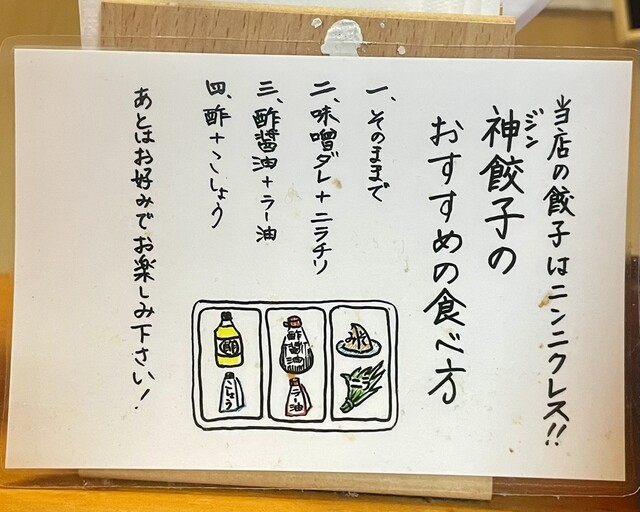 当店の餃子はニンニクレス!!
神餃子の
ジン
おすすめの食べ方
一、そのままで
二、味噌ダレ+ニラチリ
三、酢醤油+ラー油
四、酢+こしょう
あとはお好みでお楽しみ下さい!
酢醤油
ラー油
酢
こしょう